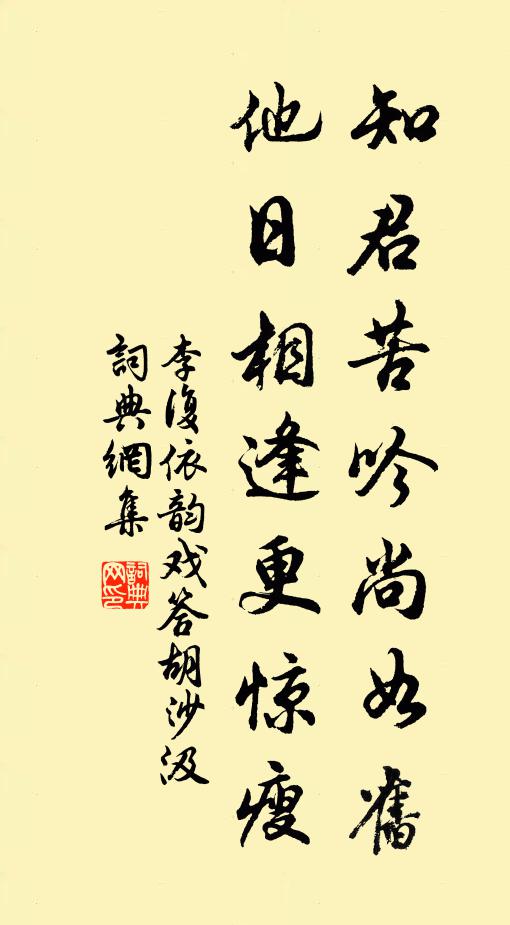 知君苦吟尚如舊
他日相逢更惊瘦
李復依韵戏答胡沙汲
詞典網集
詞典
网印